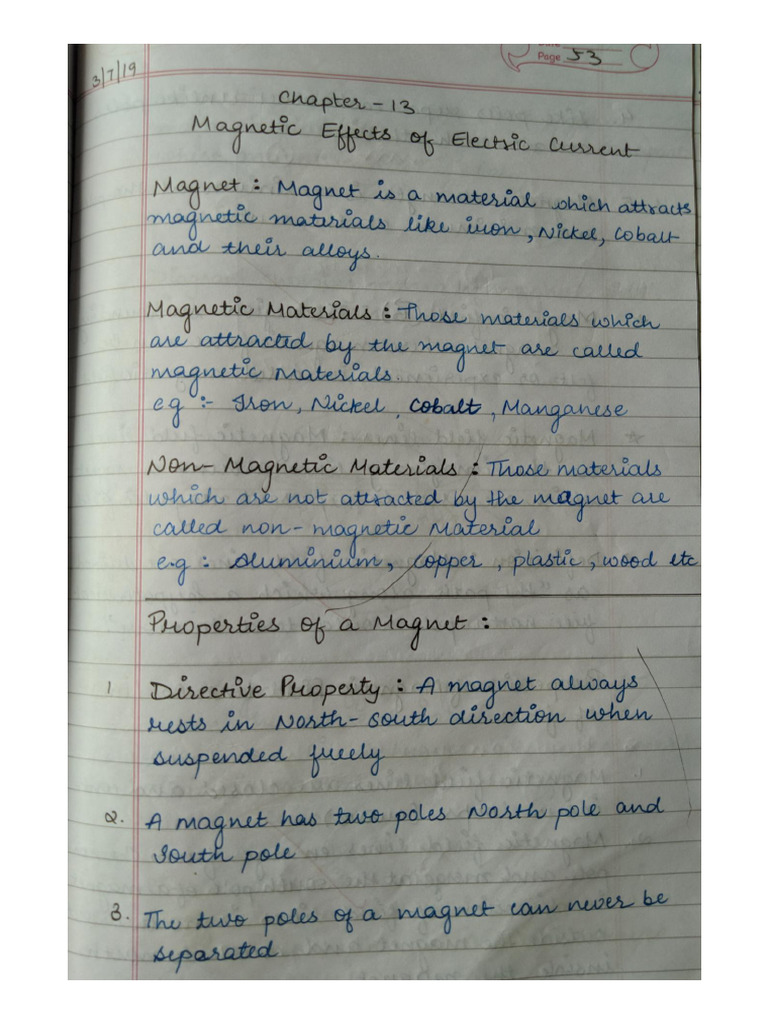 Page 53
3/7/19
Chapter - 13
Magnetic Effects of Electric Current
Magnet : Magnet is a material which attracts
magnetic materials like iron, Nickel, Cobalt
and their alloys.
Magnetic Materials : Those materials which
are attracted by the magnet are called
magnetic materials.
e.g :- Iron, Nickel, Cobalt, Manganese
Non- Magnetic Materials : Those materials
which are not attracted by the magnet are
called non-magnetic material
e.g : aluminium, copper, plastic, wood etc
Properties of a Magnet :
1 Directive Property : A magnet always
rests in North-South direction when
suspended freely
2. A magnet has two poles North pole and
South pole
3. The two poles of a magnet can never be
separated